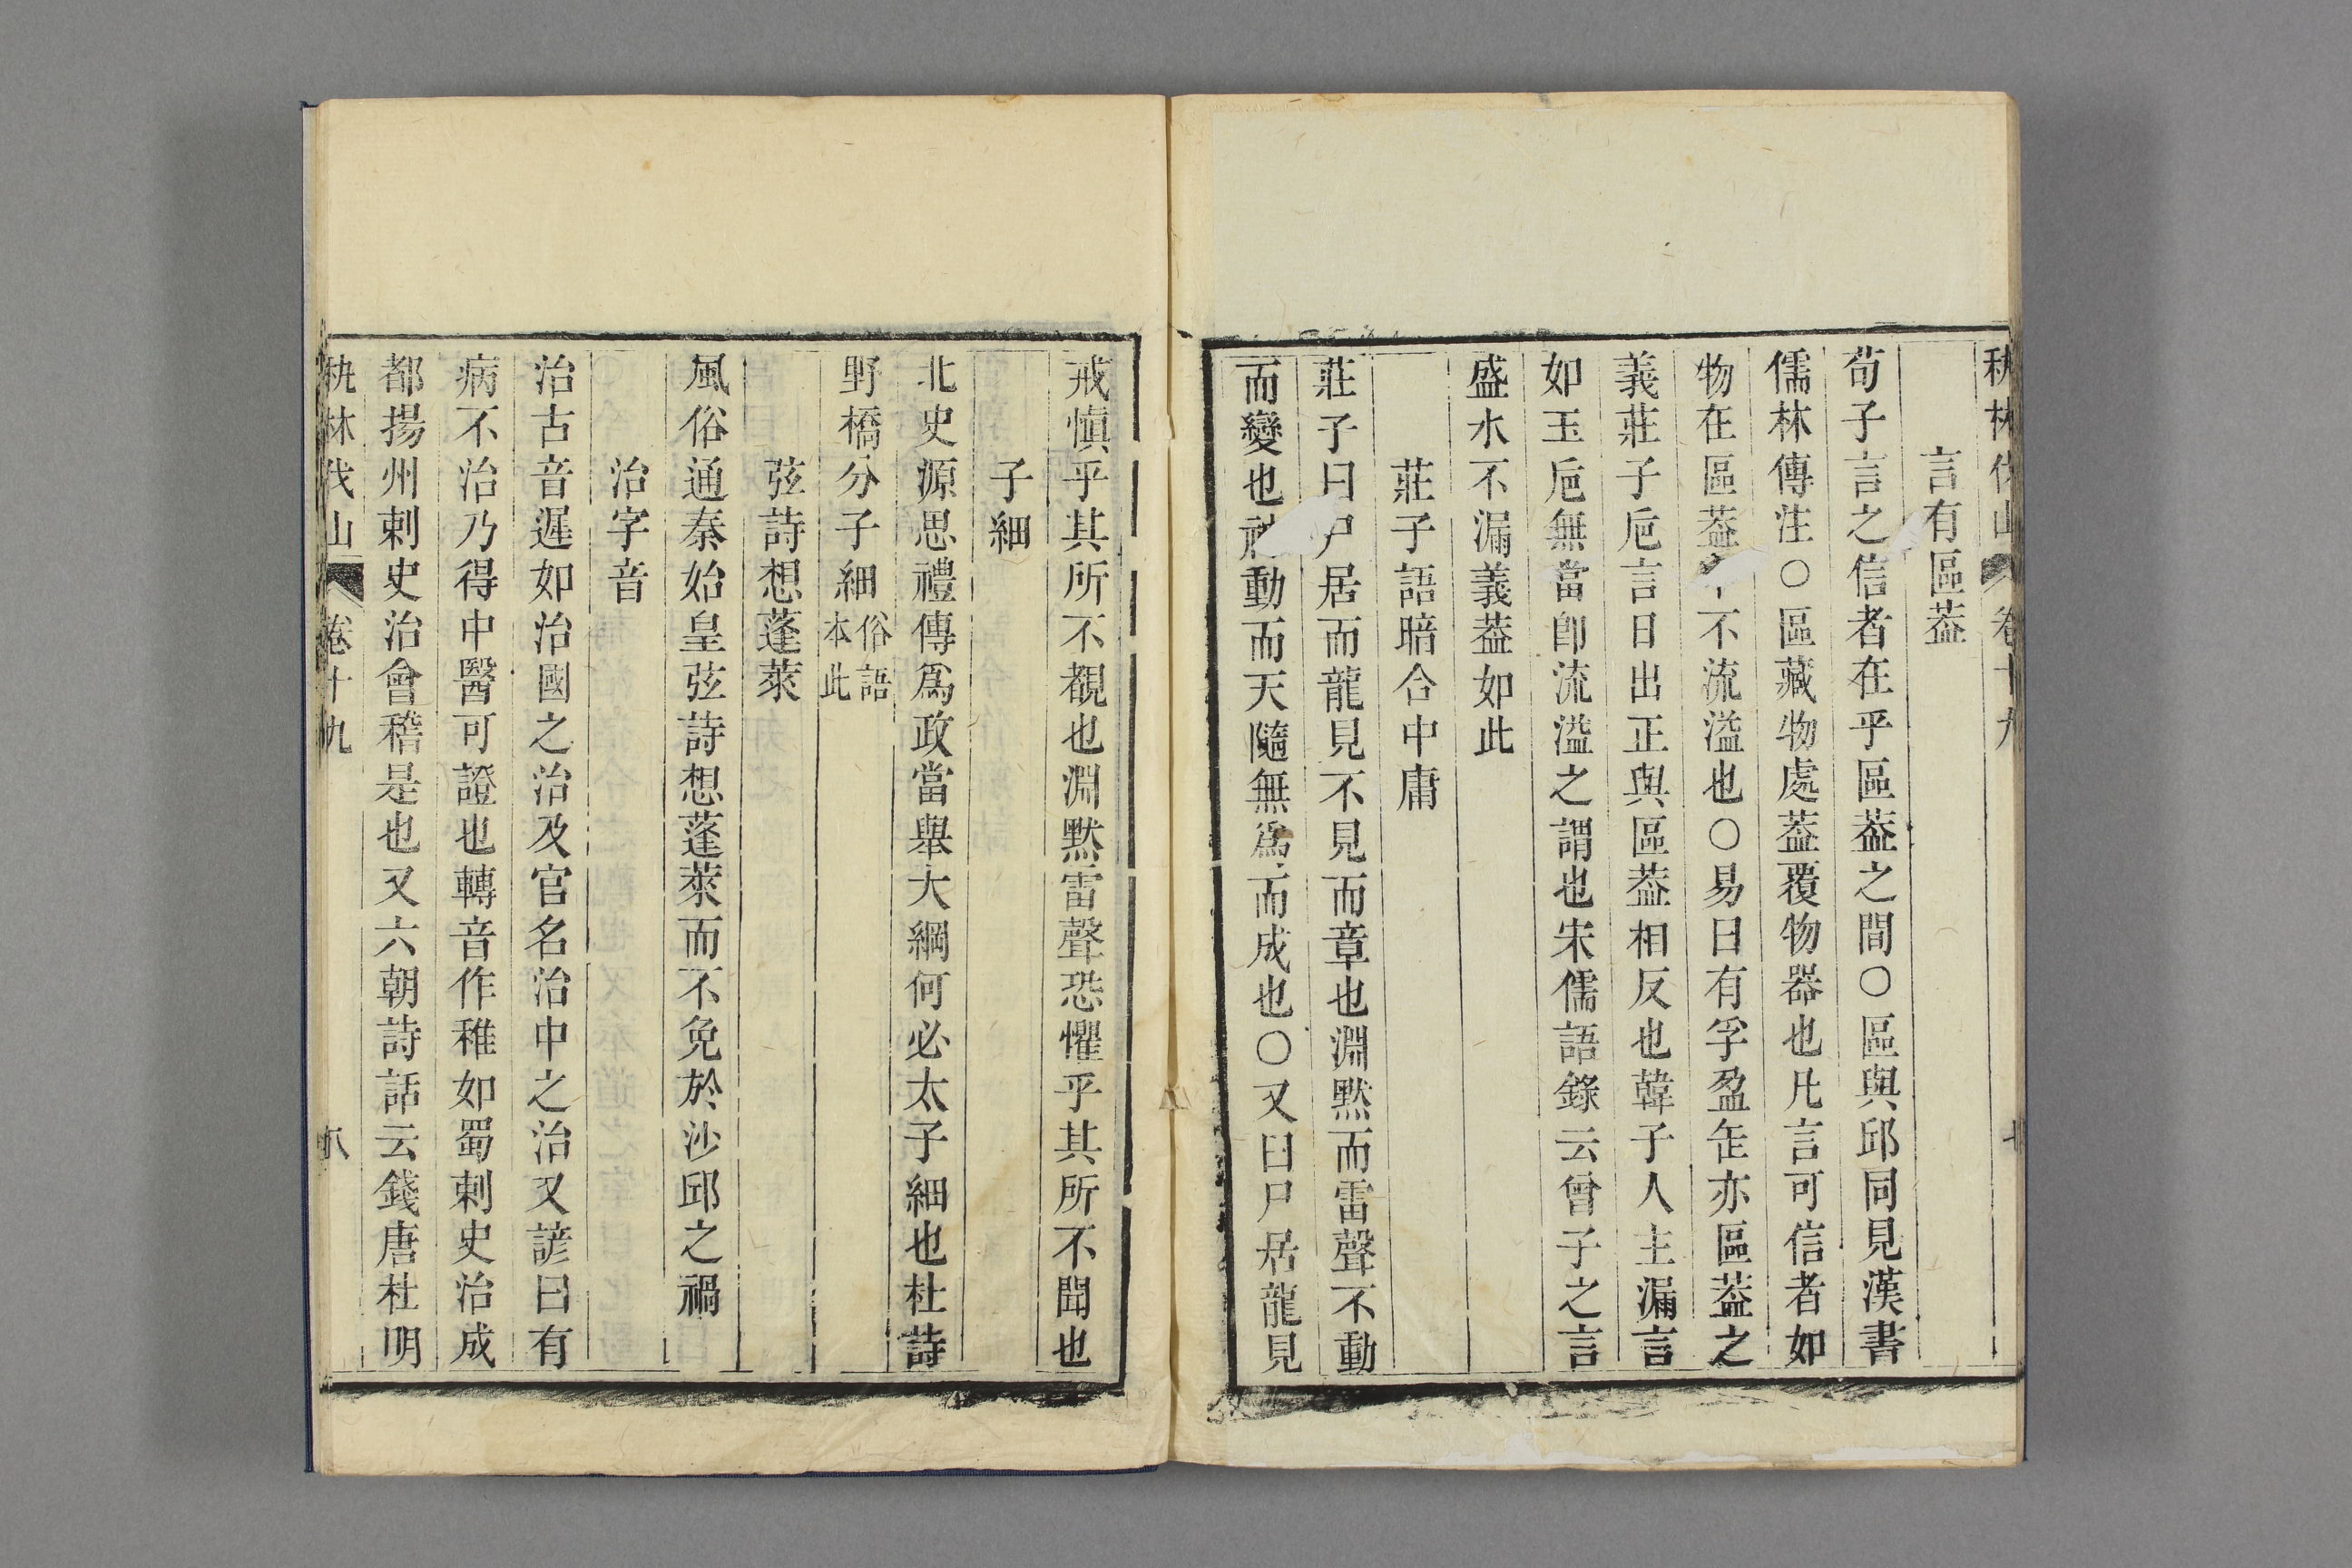 秇林伐山 卷十九 七
言有區葢
荀子言之信者在乎區葢之間○區與邱同見漢書
儒林傳注○區藏物處葢覆物器也凡言可信者如
物在區葢不流溢也○易曰有孚盈缶亦區葢之
義莊子巵言日出正與區葢相反也韓子人主漏言
如玉巵無當卽流溢之謂也宋儒語錄云曾子之言
盛水不漏義葢如此
莊子語暗合中庸
莊子曰尸居而龍見不見而章也淵默而雷聲不動
而變也神動而天隨無爲而成也○又曰尸居龍見
戒愼乎其所不覩也淵默雷聲恐懼乎其所不聞也
子細
北史源思禮傳爲政當舉大綱何必太子細也杜詩
野橋分子細俗語本此
弦詩想蓬萊
風俗通秦始皇弦詩想蓬萊而不免於沙邱之禍
治字音
治古音遲如治國之治及官名治中之治又諺曰有
病不治乃得中醫可證也轉音作稚如蜀刺史治成
都揚州刺史治會稽是也又六朝詩話云錢唐杜明
秇林伐山 卷十九 八